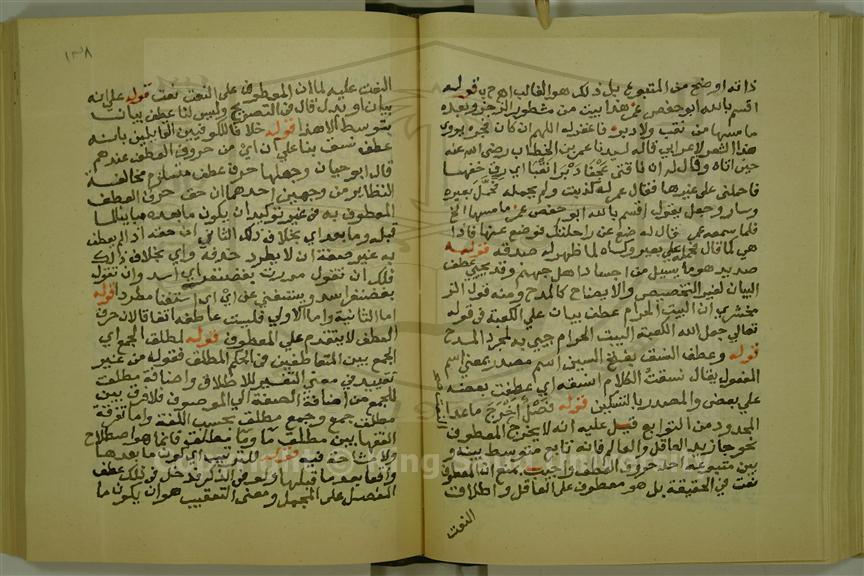 ذاته اوضح من المتبوع بل ذلك هو الغالب اهـ ح ب قوله
اقسم بالله ابو حفص عمر هذا بين من مشطور الرجز وبعده
ما مسها من نقب ولا دبر فاغفر له اللهم ان كان فجر يروى
هذا الشعر لاعرابي قاله لسيدنا عمر بن الخطاب رضي الله عنه
حين اتاه وقال له ان ناقتي عجفا دبرا نقبا اي رق خفها
فاحملني على غيرها فقال عمر له كذبت ولم يحمله فحمل بعيره
وسار وجعل يقول اقسم بالله ابو حفص عمر ما مسها الخ
فلما سمعه عمر قال له ضع عن راحلتك فوضع عنها فاذا
هي كما قال فحمله على بعير وكساه لما ظهر له صدقه قوله
صديد هو ما يسيل من اجساد اهل جهنم وقد يجيء عطف
البيان لغير التخصيص والايضاح كالمدح ومنه قول الز
مخشري ان البيت الحرام عطف بيان على الكعبة في قوله
تعالى جعل الله الكعبة البيت الحرام جيء به لمجرد المدح
قوله وعطف النسق بفتح السين اسم مصدر بمعنى اسم
المفعول يقال نسقت الكلام انسقه اي عطفت بعضه
على بعض والمصدر بالتسكين قوله فصل اخرج ماعدا
المحدود من التوابع قيل عليه انه لا يخرج المعطوف
نحو جا زيد العاقل والعالم فانه تابع متوسط بينه و
بين متبوعه احد حروف العطف واجيب بمنع ان المعطوف
نعت في الحقيقة بل هو معطوف على العاقل واطلاق
النعت
١٣٨
النعت عليه لما ان المعطوف على النعت نعت قوله على انه
بيان او بدل قال في التصريح وليس لنا عطف بيان
بتوسط الا هذا قوله خلافا للكوفيين القايلين بانه
عطف نسق بنا على ان اي من حروف العطف عندهم
قال ابو حيان وجعلها حرف عطف مستلزم مخالفة
النظاير من وجهين احدهما ان حق حرف العطف
المعطوف به في غير توكيد ان يكون ما بعده مباينا لما
قبله وما بعد اي بخلاف ذلك الثاني ان حقه اذ الم يعطف
به غير صفة ان لا يطرد حذفه واي بخلاف ذلك
فلك ان تقول مررت بغضنفر اي اسد وان تقول
بغضنفر اسد ويستغنى عن اي استغنا مطرد قوله
اما الثانية واما الاولى فليست عاطفة اتفاقا لان حرف
العطف لا يتقدم على المعطوف قوله لمطلق الجمع اي
الجمع بين المتعاطفين في الحكم المطلق فقوله من غير
تقييد في معنى التفسير للاطلاق واضافة مطلق
للجمع من اضافة الصفة الى الموصوف فلا فرق بين
مطلق جمع وجمع مطلق بحسب اللغة واما تفرقة
الفقها بين مطلق ما وما مطلق فانما هو اصطلاح
ولا مشاحة فيه قوله للترتيب اي كون ما بعدها
واقعا بعد ما قبلها ولو في الذكر يدخل في ذلك عطف
المفصل على المجمل ومعنى التعقيب هو ان يكون ما